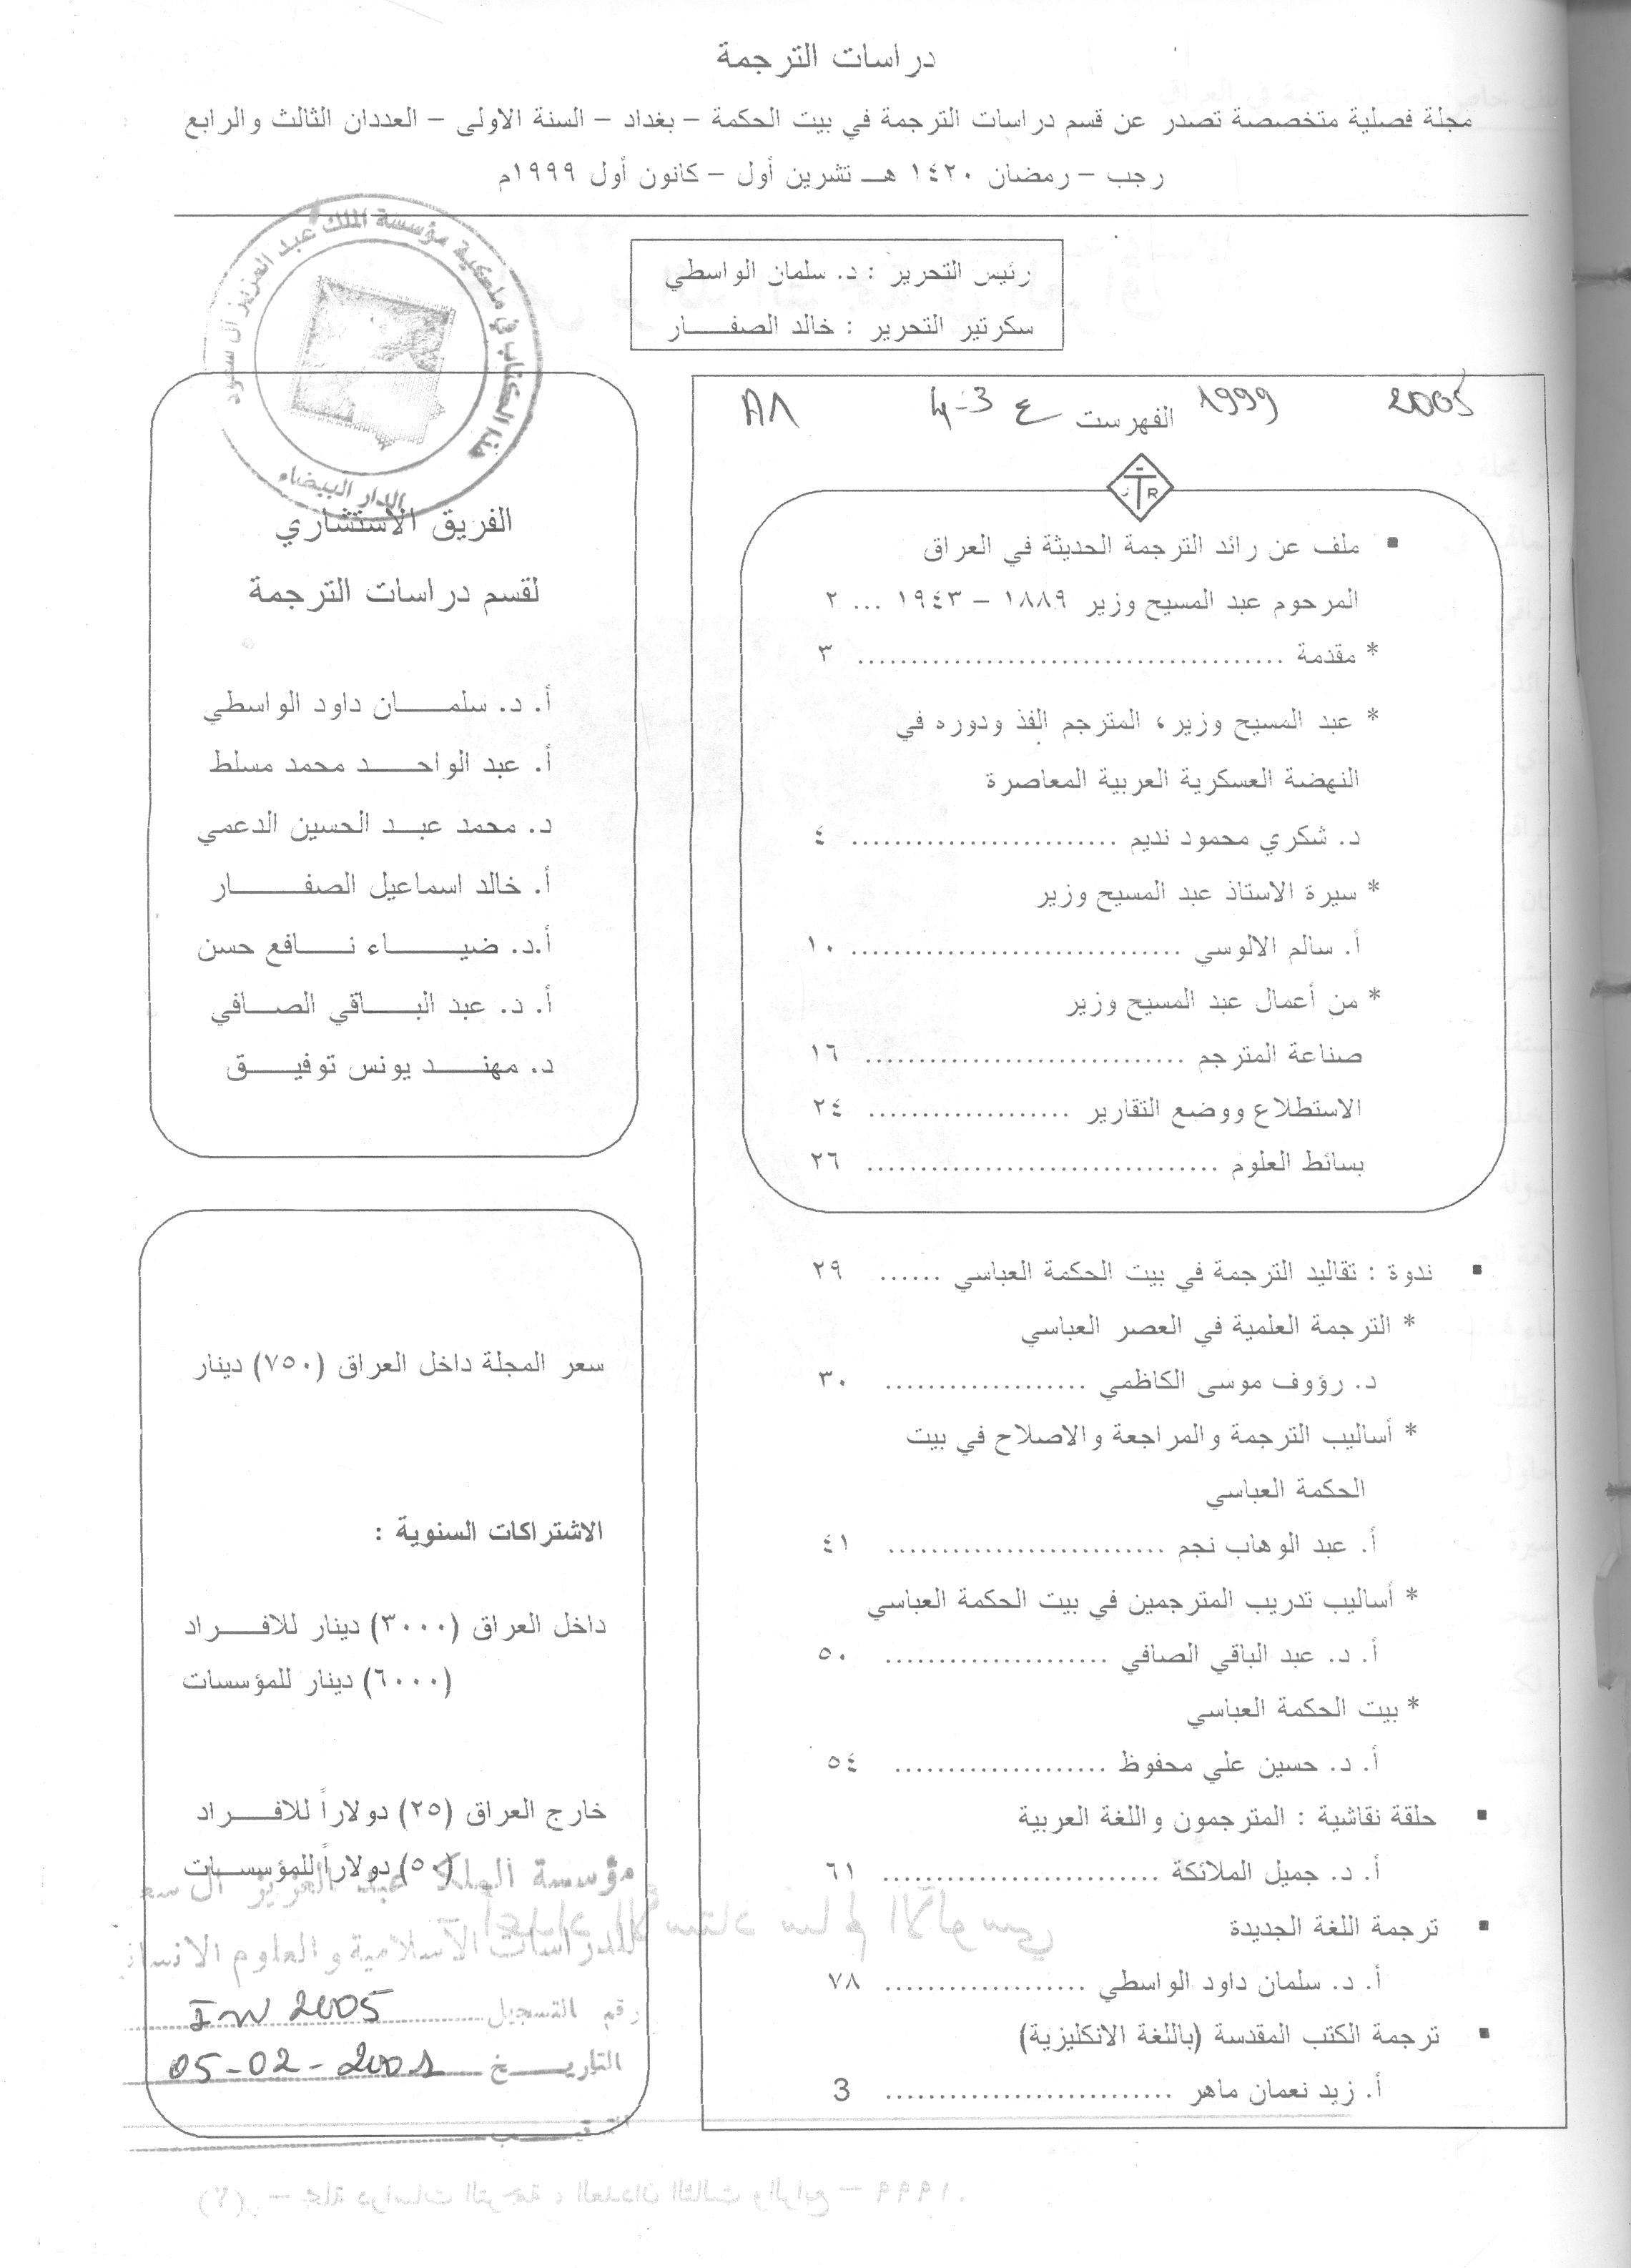 دراسات الترجمة
مجلة فصلية متخصصة تصدر عن قسم دراسات الترجمة في بيت الحكمة – بغداد – السنة الاولى – العددان الثالث والرابع
رجب – رمضان ١٤٢٠ هـ تشرين أول – كانون أول ١٩٩٩م
رئيس التحرير : د. سلمان الواسطي
سكرتير التحرير : خالد الصفـــــار
هذا الكتاب في ملكية مؤسسة الملك عبد العزيز آل سعود
الدار البيضاء
2005 1999 الفهرست ع 3-4
ملف عن رائد الترجمة الحديثة في العراق
المرحوم عبد المسيح وزير ١٨٨٩ – ١٩٤٣ ... ٢
* مقدمة ........................................ ٣
* عبد المسيح وزير، المترجم الفذ ودوره في
النهضة العسكرية العربية المعاصرة
د. شكري محمود نديم ......................... ٤
* سيرة الاستاذ عبد المسيح وزير
أ. سالم الالوسي ............................... ١٠
* من أعمال عبد المسيح وزير
صناعة المترجم .............................. ١٦
الاستطلاع ووضع التقارير ................... ٢٤
بسائط العلوم ................................. ٢٦
ندوة : تقاليد الترجمة في بيت الحكمة العباسي ...... ٢٩
* الترجمة العلمية في العصر العباسي
د. رؤوف موسى الكاظمي ................... ٣٠
* أساليب الترجمة والمراجعة والاصلاح في بيت
الحكمة العباسي
أ. عبد الوهاب نجم .......................... ٤١
* أساليب تدريب المترجمين في بيت الحكمة العباسي
أ. د. عبد الباقي الصافي ..................... ٥٠
* بيت الحكمة العباسي
أ. د. حسين علي محفوظ .................... ٥٤
حلقة نقاشية : المترجمون واللغة العربية
أ. د. جميل الملائكة .......................... ٦١
ترجمة اللغة الجديدة
أ. د. سلمان داود الواسطي ................... ٧٨
ترجمة الكتب المقدسة (باللغة الانكليزية)
أ. زيد نعمان ماهر ........................... 3
الفريق الاستشاري
لقسم دراسات الترجمة
أ. د. سلمـــــان داود الواسطي
أ. عبد الواحـــــد محمد مسلط
د. محمد عبـــد الحسين الدعمي
أ. خالد اسماعيل الصفـــــــار
أ.د. ضيـــــــاء نــــافع حسن
أ. د. عبد البـــــاقي الصـــافي
د. مهنــــــد يونس توفيـــــق
سعر المجلة داخل العراق (٧٥٠) دينار
الاشتراكات السنوية :
داخل العراق (٣٠٠٠) دينار للافـــــراد
(٦٠٠٠) دينار للمؤسسات
خارج العراق (٢٥) دولاراً للافـــــراد
(٥٠) دولاراً للمؤسســـات
مؤسسة الملك عبد العزيز آل سعو
للدراسات الاسلامية والعلوم الانسان
رقم التسجيل 2005
التاريـــــخ 05-02-2001